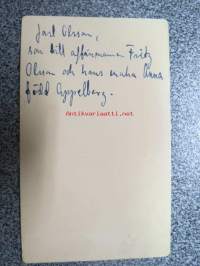 Jarl Olsson,
son till affärsmannen Fritz
Olsson och hans maka Anna
född Appelberg.
www.antikvariaatti.net